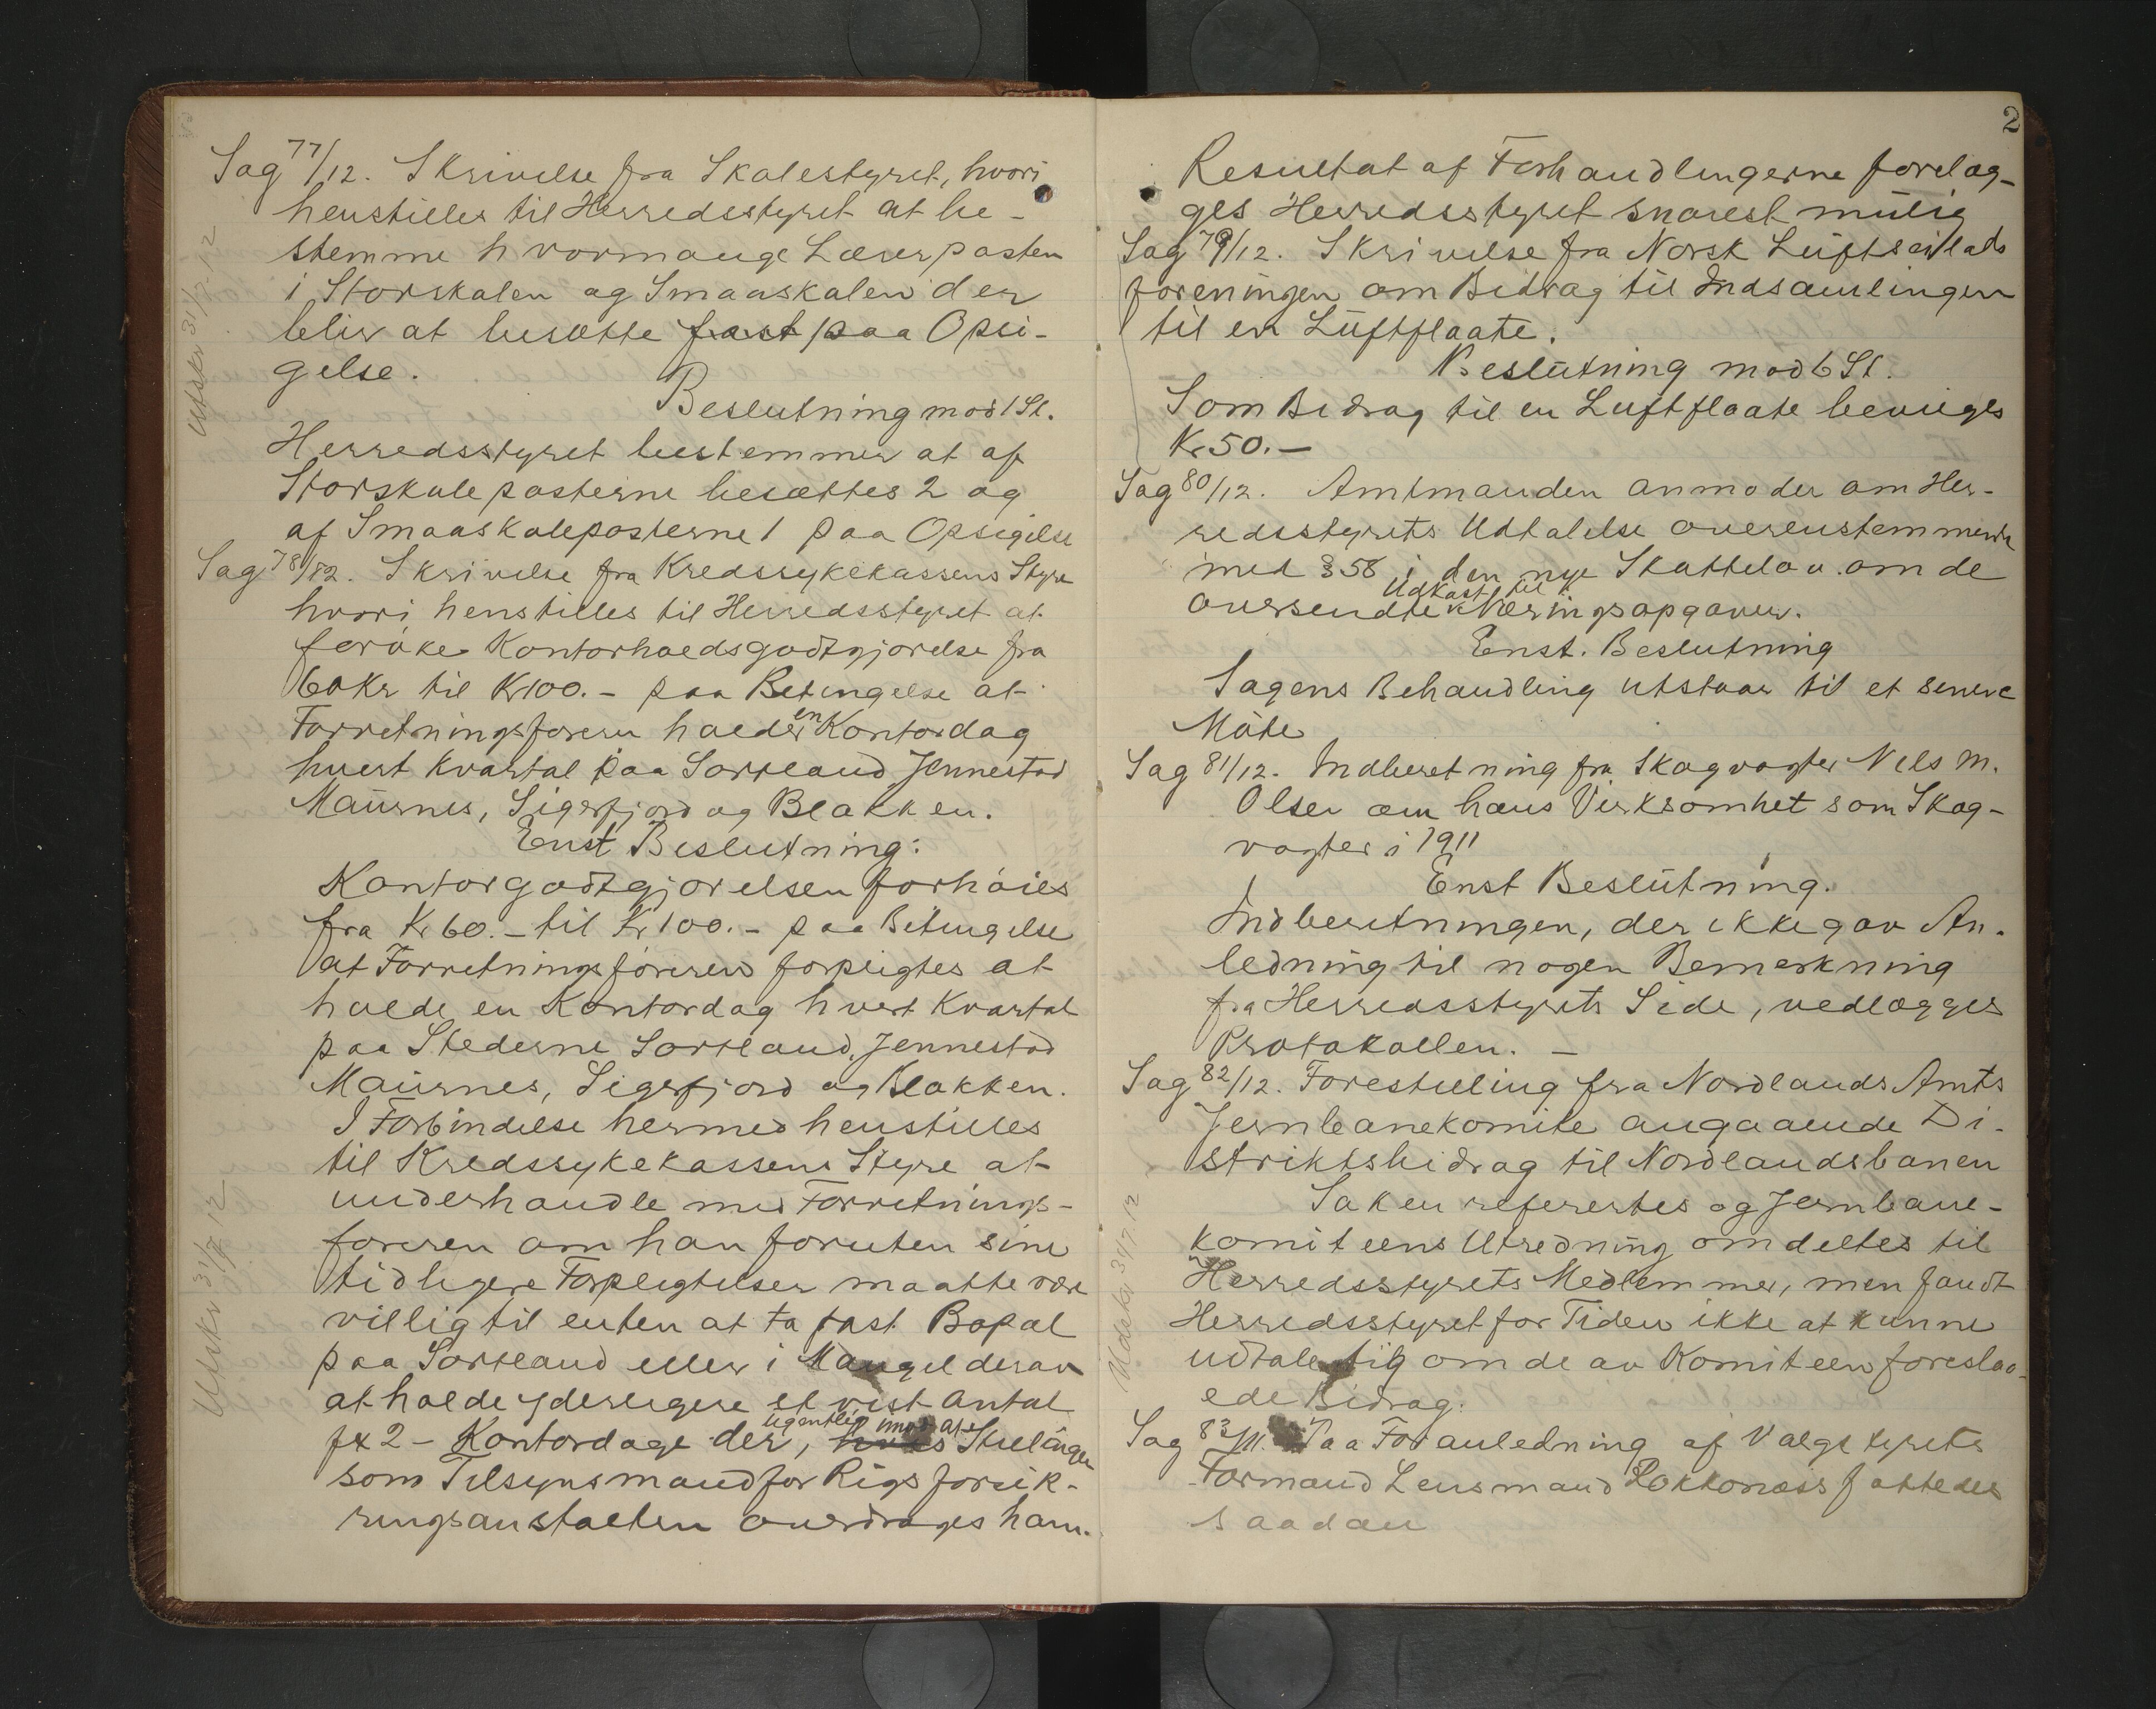 Sag 77/12. Skrivelse fra Skolestyret, hvori
henstilles til Herredsstyret at be-
stemme hvormange Lærerposter
i Storskolen og Smaaskolen der
blir at besætte fast paa Opsi-
gelse.
Beslutning mod 1 St.
Herredsstyret bestemmer at af
Storskoleposterne besættes 2 og
af Smaaskoleposterne 1 paa Opsigelse
Sag 78/82. Skrivelse fra Kredssykekassens Styre
hvori henstilles til Herredsstyret at
forøke Kontorholdsgodtgjørelse fra
60 Kr til Kr 100.- paa Betingelse at
Forretningsføreren holder en Kontordag
hvert Kvartal paa Sortland Jennestad
Maurnes, Sigerfjord og Blokken.
Enst Beslutning:
Kontorgodtgjørelsen forhøies
fra Kr 60.- til Kr 100.- paa Betingelse
at Forretningsføreren forpligtes at
holde en Kontordag hvert Kvartal
paa Stederne Sortland, Jennestad
Maurnes, Sigerfjord og Blokken.
I Forbindelse hermed henstilles
til Kredssykekassens Styre at
underhandle med Forretnings-
føreren om han foruten sine
tidligere Forpligtelser maatte være
villig til enten at ta fast Bopæl
paa Sortland eller i Mangel derav
at holde yderligere et vist Antal
fx 2 - Kontordage der, hvis ugentlig imod at Stillingen
som Tilsynsmand for Rigsforsik-
ringsanstalten overdrages ham.
Utskr 31/7 12
Utskr 31/7 12
2
Resultat af Forhandlingerne forelæg-
ges Herredsstyret snarest mulig
Sag 79/12. Skrivelse fra Norsk Luftseilads
foreningen om Bidrag til Indsamlingen
til en Luftflaate.
Beslutning mod 6 St.
Som Bidrag til en Luftflaate bevilges
Kr 50.-
Sag 80/12. Amtmanden anmoder om Her-
redsstyrets Udtalelse overenstemmende
med § 58 i den nye Skattelov om de
oversendte Udkast til Næringsopgaver.
Enst. Beslutning
Sagens Behandling utstaar til et senere
Møte
Sag 81/12. Indberetning fra Skogvogter Nils M.
Olsen om hans Virksomhet som Skog-
vogter i 1911
Enst Beslutning.
Indberetningen, der ikke gav An-
ledning til nogen Bemerkning
fra Herredsstyrets Side, vedlægges
Protokollen. -
Sag 82/12. Forestilling fra Nordlands Amts
Jernbanekomite angaaende Di-
striktsbidrag til Nordlandsbanen
Saken referertes og Jernbane-
komiteens Utredning omdeltes til
Herredsstyrets Medlemmer, men fandt
Herredsstyret for Tiden ikke at kunne
udtale sig om de av Komiteen foreslaa-
ede Bidrag.
Sag 83/11. Paa Foranledning af Valgstyrets
Formand Lensmand fattedes
saadan
Udskr 31/7 12